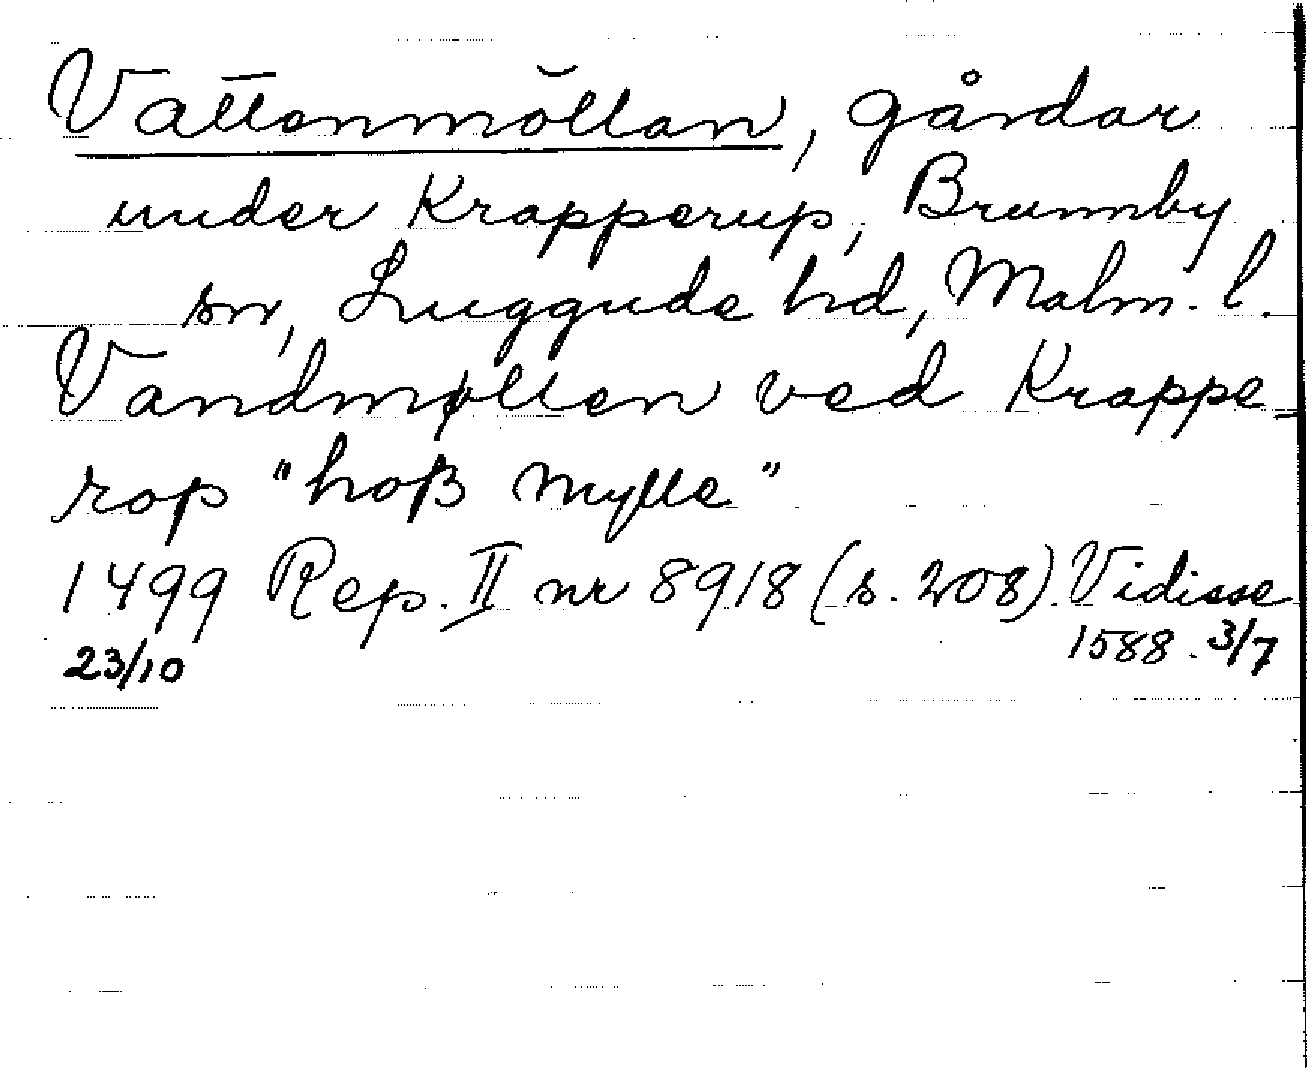 Vattenmöllan, gårdar
under Krapperup, Brunnby
sn, Luggude hd, Malm. l.
Vandmøllen ved Krappe-
rop "hoß Mylle"
1499 Rep. II nr 8918 (s. 208). Vidisse
23/10 1588. 3/7